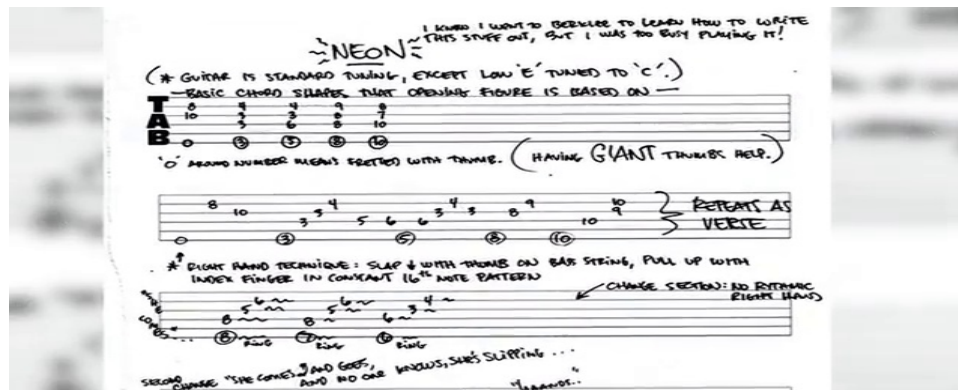 I KNOW I WENT TO BERKLEE TO LEARN HOW TO WRITE
THIS STUFF OUT, BUT I WAS TOO BUSY PLAYING IT!
~NEON~
(* GUITAR IS STANDARD TUNING, EXCEPT LOW 'E' TUNED TO 'C'.)
— BASIC CHORD SHAPES THAT OPENING FIGURE IS BASED ON —
TAB
8 4 4 9 8
10 3 3 8 7
3 6 8 10
0 3 5 8 10
'O' AROUND NUMBER MEANS FRETTED WITH THUMB. (HAVING GIANT THUMBS HELP.)
8 4 4 9 10
10 3 3 3 8 9
3 5 6 6 10
0 3 5 8 10
REPEATS AS
VERSE
* RIGHT HAND TECHNIQUE: SLAP ↓ WITH THUMB ON BASS STRING, PULL UP WITH
INDEX FINGER IN CONSTANT 16TH NOTE PATTERN
CHANGE SECTION: NO RYTHMIC
RIGHT HAND
6 6 4
5 5 3
8 8 6
8 7 6
RING RING RING
SECOND
CHANGE "SHE COMES AND GOES,
AND NO ONE KNOWS, SHE'S SLIPPING ...